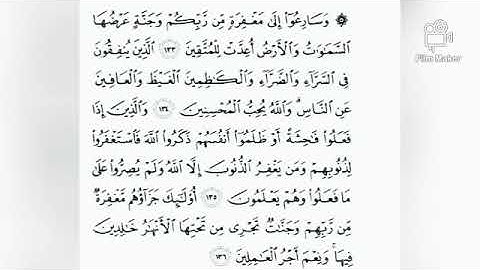 ۞ وَسَارِعُوٓا۟ إِلَىٰ مَغْفِرَةٍ مِّن رَّبِّكُمْ وَجَنَّةٍ عَرْضُهَا
ٱلسَّمَٰوَٰتُ وَٱلْأَرْضُ أُعِدَّتْ لِلْمُتَّقِينَ ١٣٣ ٱلَّذِينَ يُنفِقُونَ
فِى ٱلسَّرَّآءِ وَٱلضَّرَّآءِ وَٱلْكَٰظِمِينَ ٱلْغَيْظَ وَٱلْعَافِينَ
عَنِ ٱلنَّاسِ وَٱللَّهُ يُحِبُّ ٱلْمُحْسِنِينَ ١٣٤ وَٱلَّذِينَ إِذَا
فَعَلُوا۟ فَٰحِشَةً أَوْ ظَلَمُوٓا۟ أَنفُسَهُمْ ذَكَرُوا۟ ٱللَّهَ فَٱسْتَغْفَرُوا۟
لِذُنُوبِهِمْ وَمَن يَغْفِرُ ٱلذُّنُوبَ إِلَّا ٱللَّهُ وَلَمْ يُصِرُّوا۟ عَلَىٰ
مَا فَعَلُوا۟ وَهُمْ يَعْلَمُونَ ١٣٥ أُو۟لَٰٓئِكَ جَزَآؤُهُم مَّغْفِرَةٌ
مِّن رَّبِّهِمْ وَجَنَّٰتٌ تَجْرِى مِن تَحْتِهَا ٱلْأَنْهَٰرُ خَٰلِدِينَ
فِيهَا وَنِعْمَ أَجْرُ ٱلْعَٰمِلِينَ ١٣٦
Film Maker